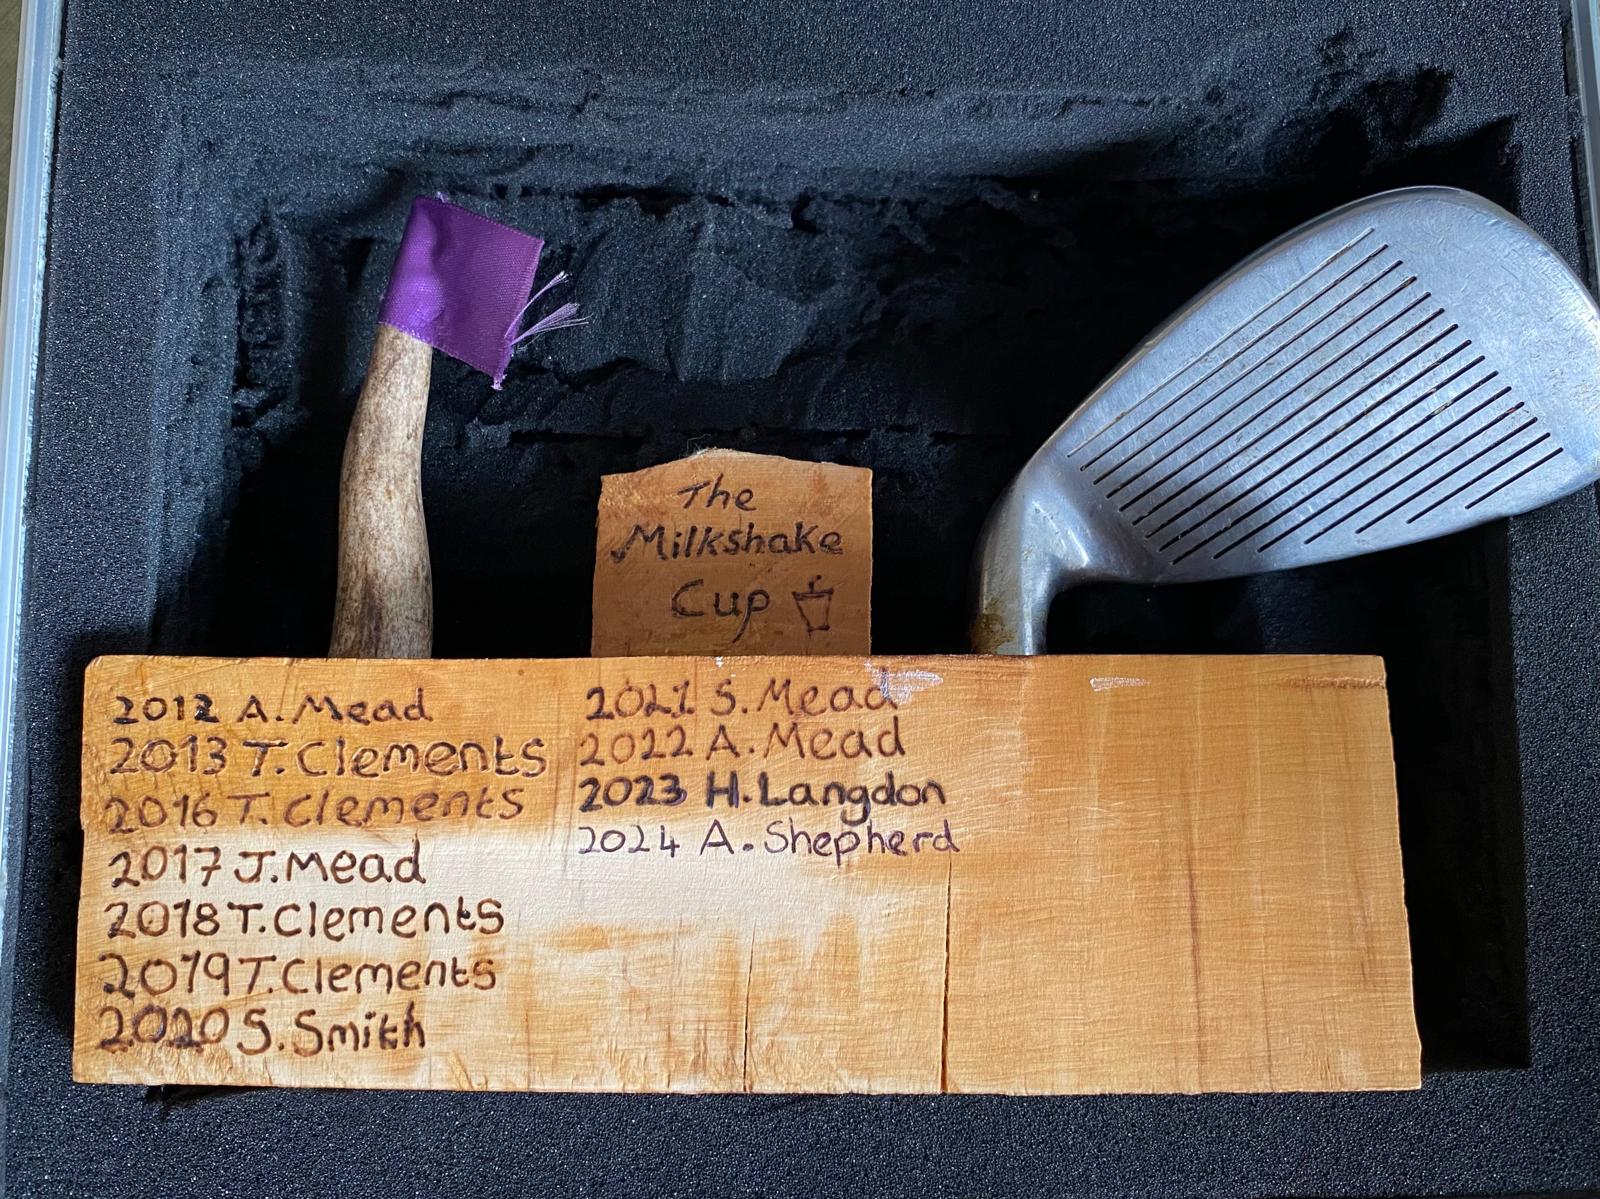 The
Milkshake
Cup
2012 A. Mead
2013 T. Clements
2016 T. Clements
2017 J. Mead
2018 T. Clements
2019 T. Clements
2020 S. Smith
2021 S. Mead
2022 A. Mead
2023 H. Langdon
2024 A. Shepherd